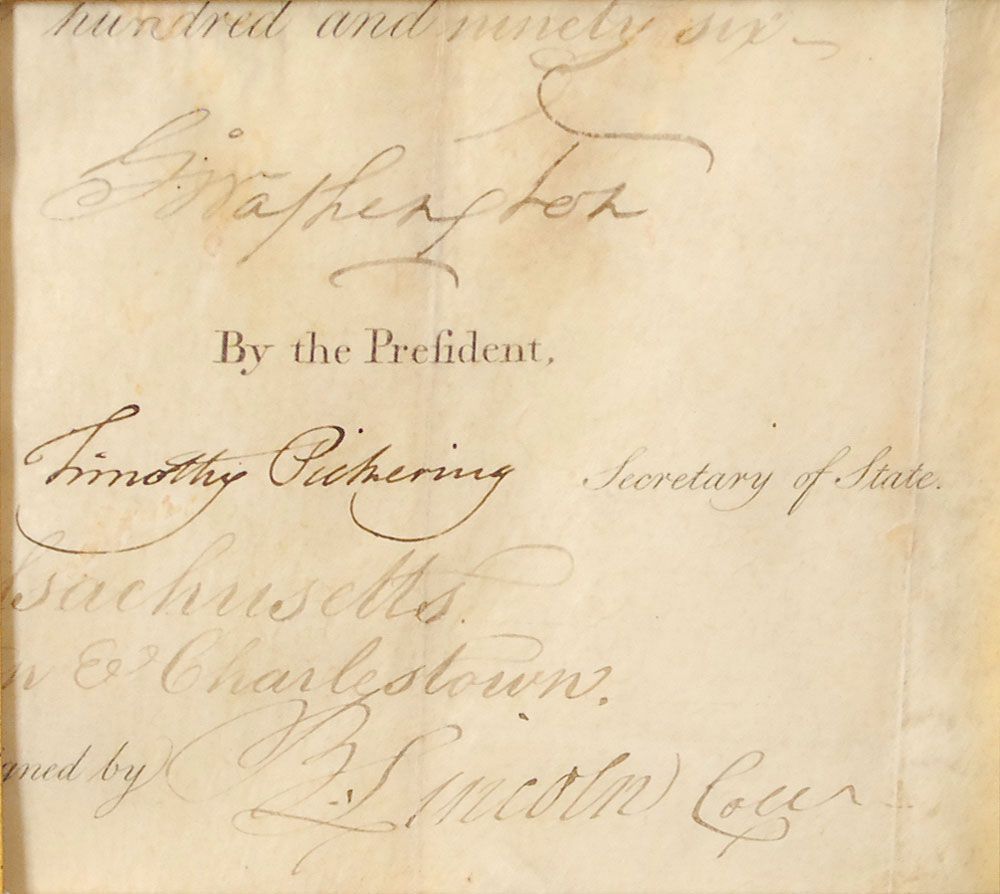 hundred and ninety six
Go Washington
By the Preſident,
Timothy Pickering Secretary of State.
ſsachusetts.
n & Charlestown.
gned by B. Lincoln Coll